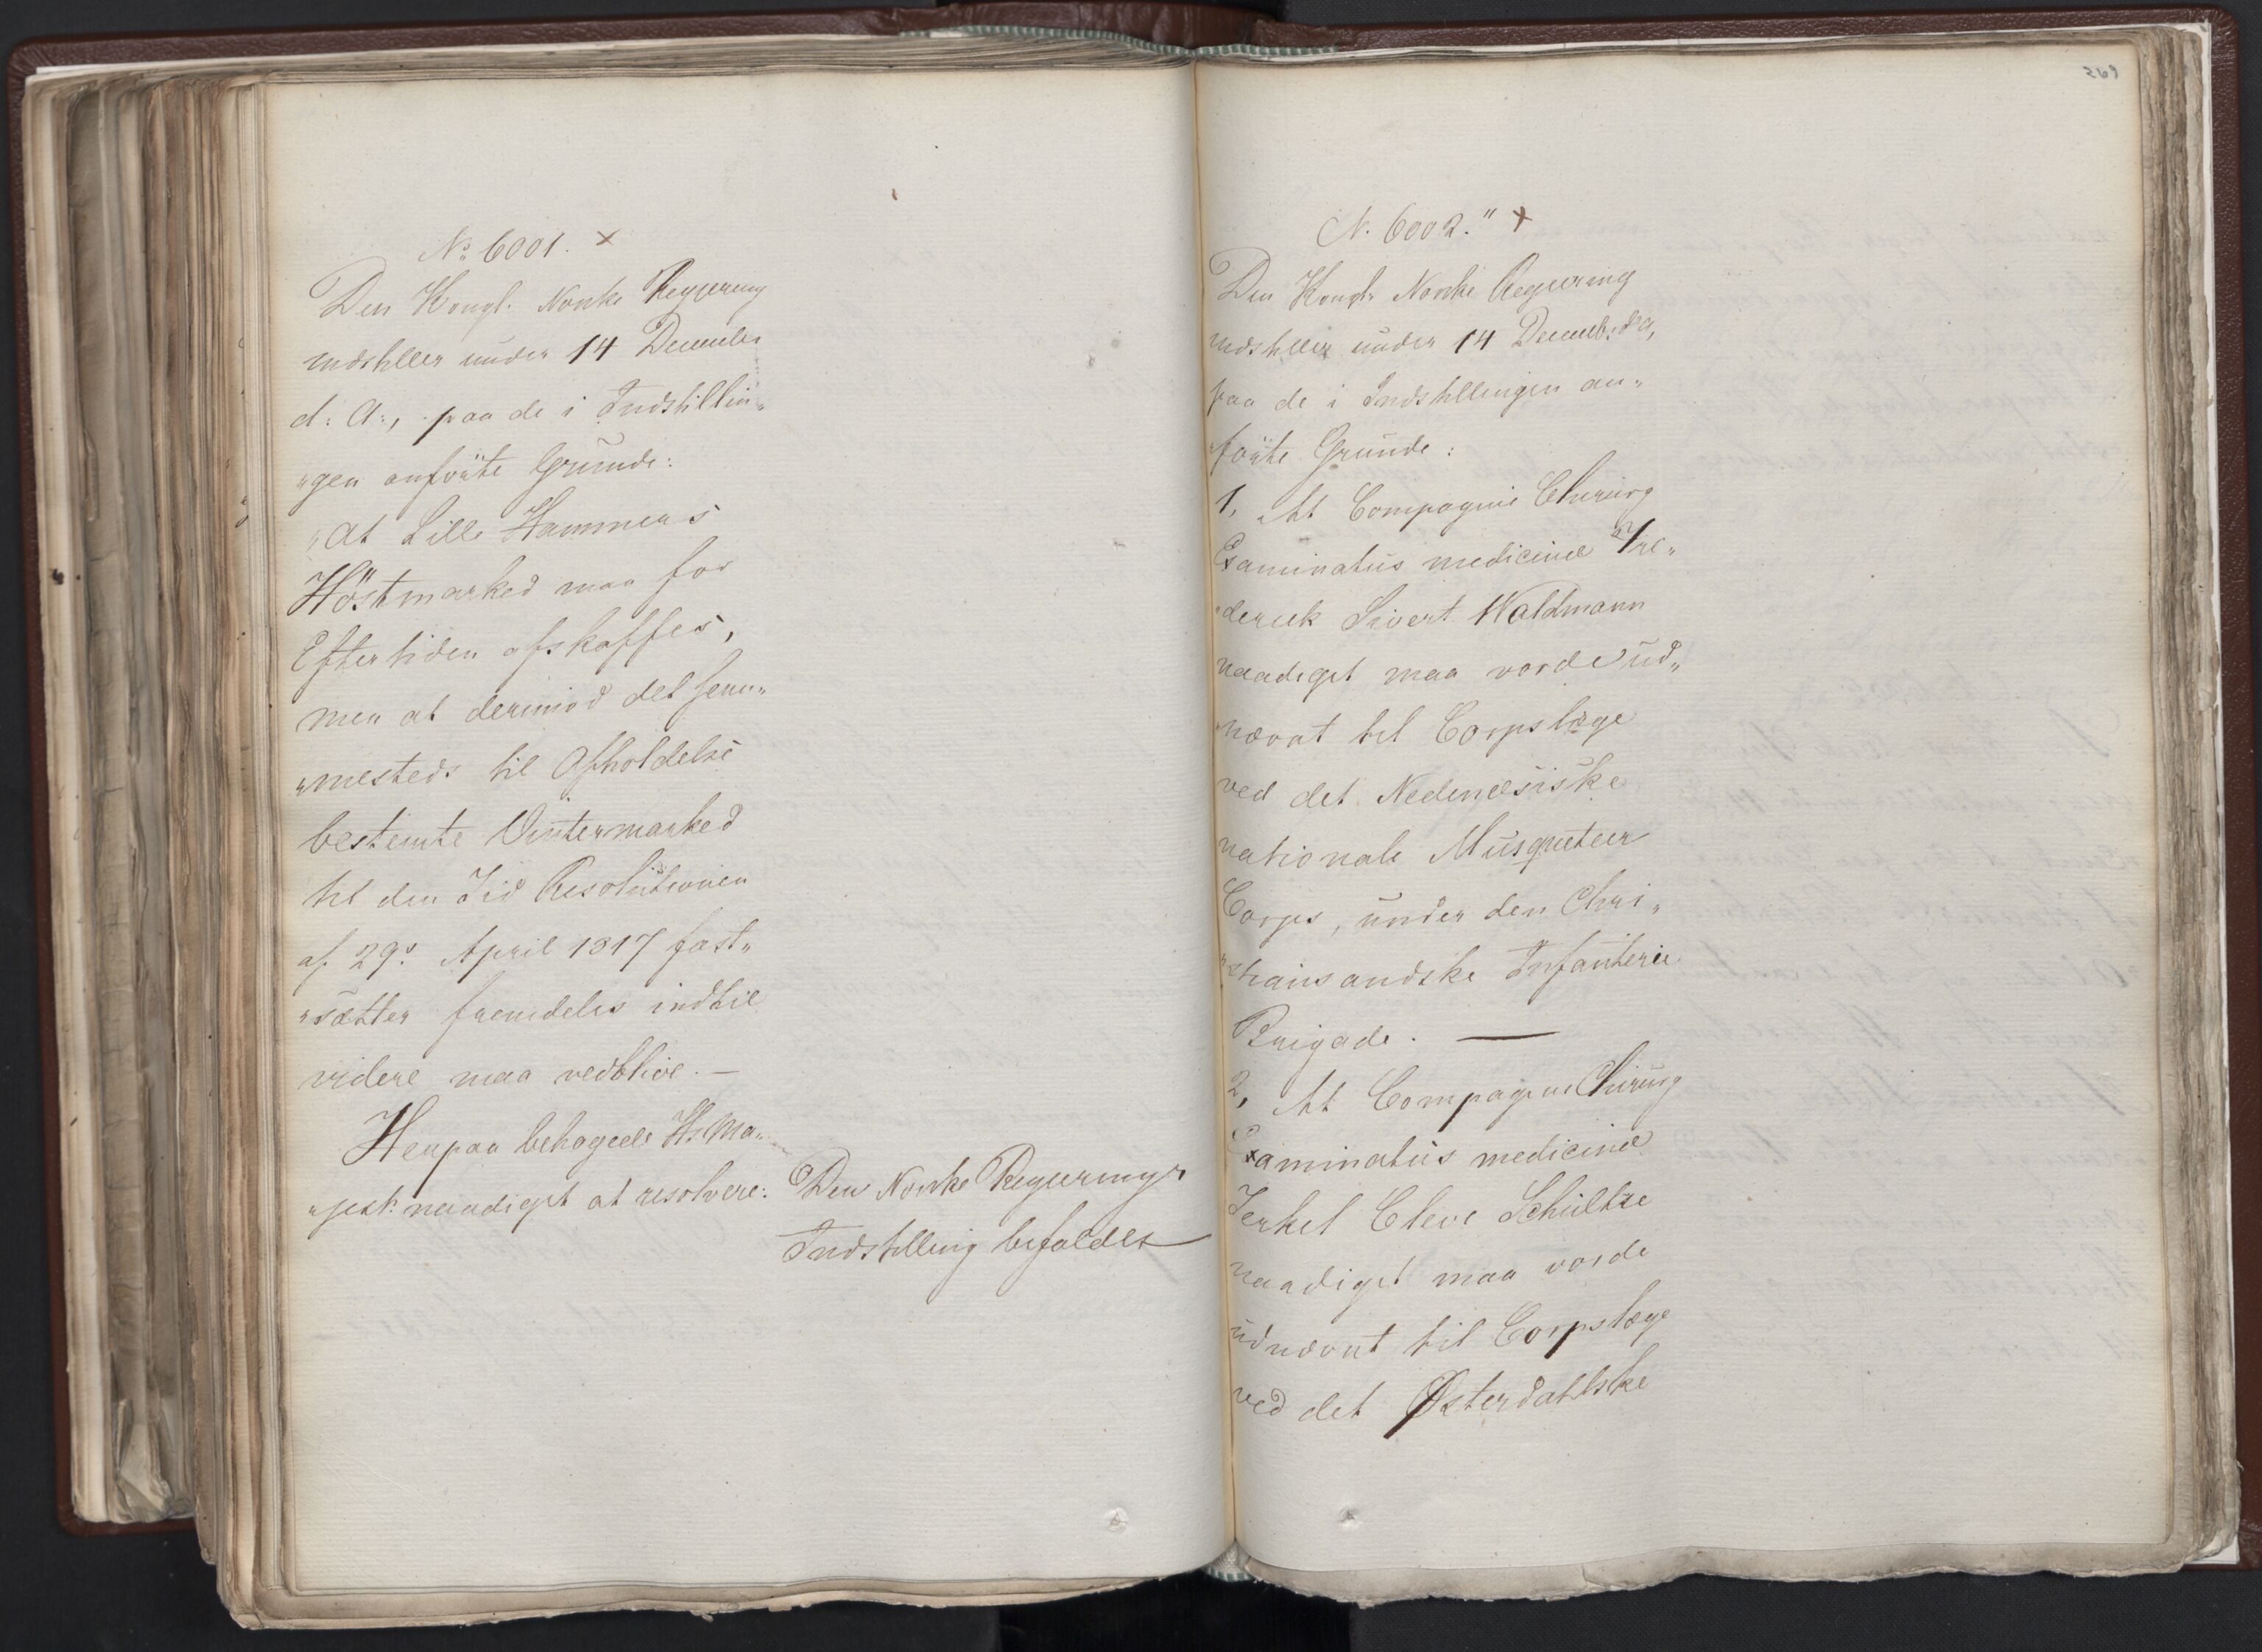 No 6001. x
Den Kongl. Norske Regjering
indstiller under 14 December
d: A:, paa de i Indstillin„
„gen anførte Grunde:
„At Lille Hammers
Höstmarked maa for
Eftertiden afskaffes,
men at derimod det sam„
„mesteds til Afholdelse
bestemte Vintermarked
til den Tid Resolutionen
af 29de April 1817 fast„
„sætter fremdeles indtil
videre maa vedblive. —
Herpaa behagede Hs. Ma„
„jest: naadigst at resolvere:
Den Norske Regjerings
Indstilling bifaldes
269
N. 6002." x
Den Kongl. Norske Regjering
indstiller under 14 Decemb: d. A,
paa de i Indstillingen an„
„förte Grunde:
1, At Compagnie Chirurg
Examinatus medicinæ Fre„
„derick Sivert Waldmann
naadigst maa vorde ud„
„nævnt til Corpslæge
ved det Nedenæsiske
nationale Musqueteer
Corps, under den Chri„
„stiansandske Infanterie
Brigade. —
2, At Compagnie Chirurg
Examinatus medicinæ
Terkel Cleve Schultze
naadigst maa vorde
udnævnt til Corpslæge
ved det Østerdahlske